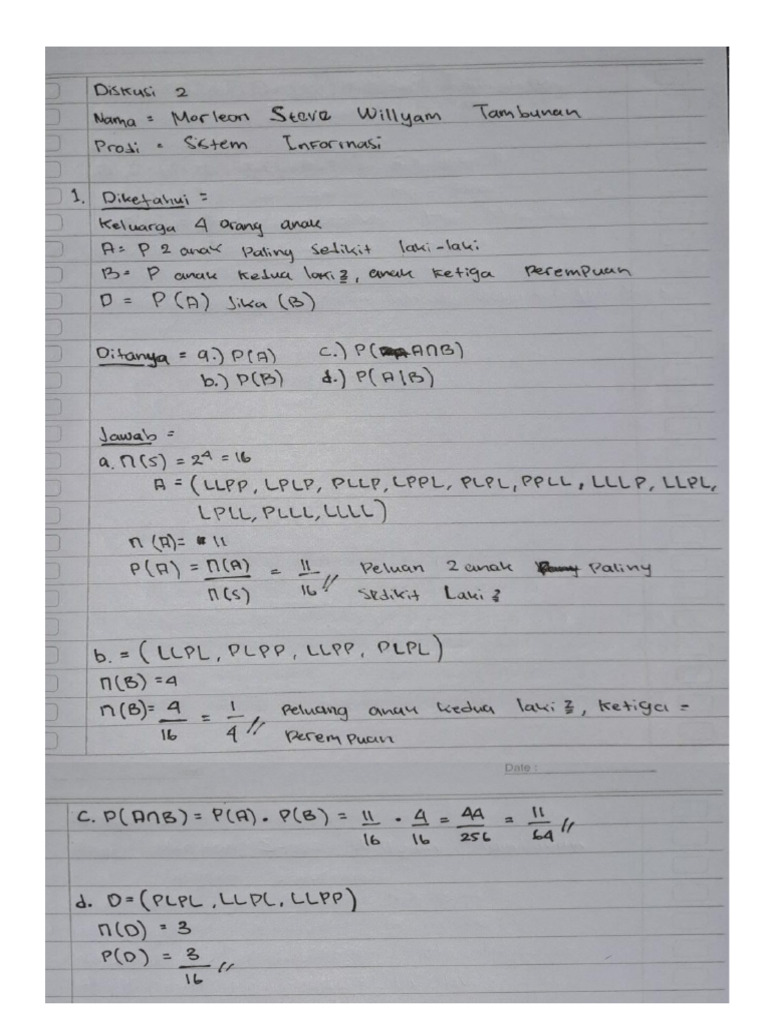 Diskusi 2
Nama = Morleon Steve Willyam Tambunan
Prodi = Sistem Informasi
1. Diketahui =
Keluarga 4 orang anak
A = P 2 anak Paling Sedikit laki-laki
B = P anak kedua laki2, anak ketiga Perempuan
D = P(A) Jika (B)
Ditanya = a.) P(A) c.) P(A∩B)
b.) P(B) d.) P(A|B)
Jawab =
a. n(S) = 2⁴ = 16
A = (LLPP, LPLP, PLLP, LPPL, PLPL, PPLL, LLLP, LLPL,
LPLL, PLLL, LLLL)
n(A) = 11
P(A) = n(A)/n(S) = 11/16 // Peluan 2 anak Paling
Sedikit Laki2
b. = (LLPL, PLPP, LLPP, PLPL)
n(B) = 4
n(B) = 4/16 = 1/4 // Peluang anak kedua laki2, ketiga =
Perempuan
Date :
c. P(A∩B) = P(A) . P(B) = 11/16 . 4/16 = 44/256 = 11/64 //
d. D = (PLPL, LLPL, LLPP)
n(D) = 3
P(D) = 3/16 //